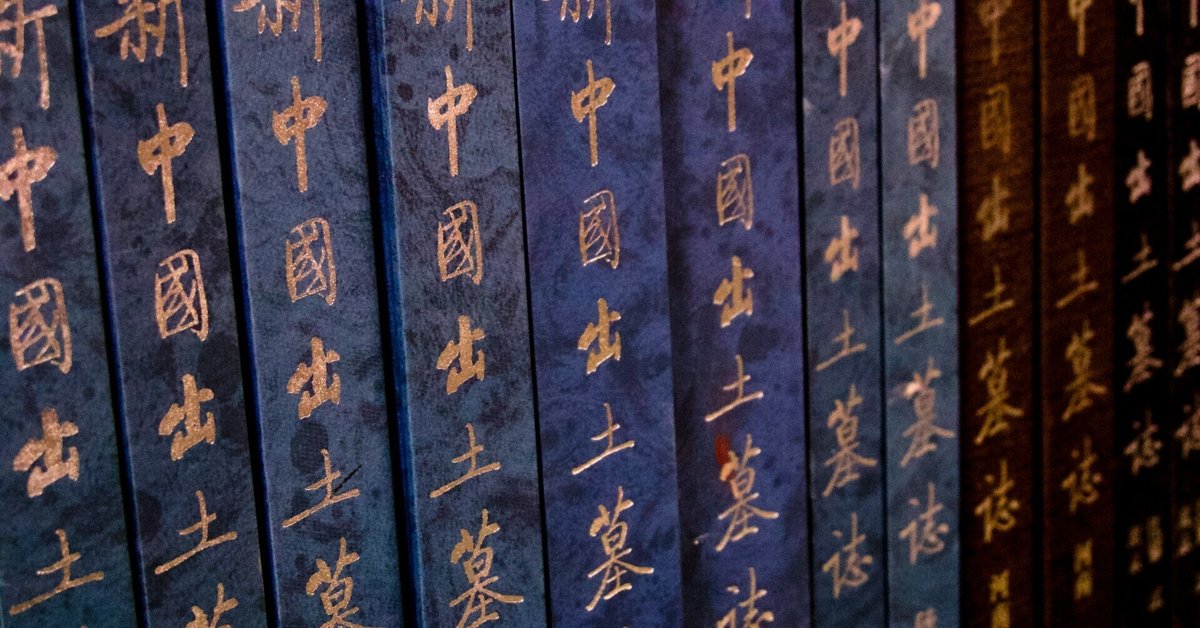 新中國出土
新中國出土墓
新中國出土墓
新中國出土墓
新中國出土墓
中國出土墓誌
中國出土墓誌
中國出土墓誌
中國出土墓誌 河南
中國出土墓誌 河南
中國出土墓誌
國出土墓誌